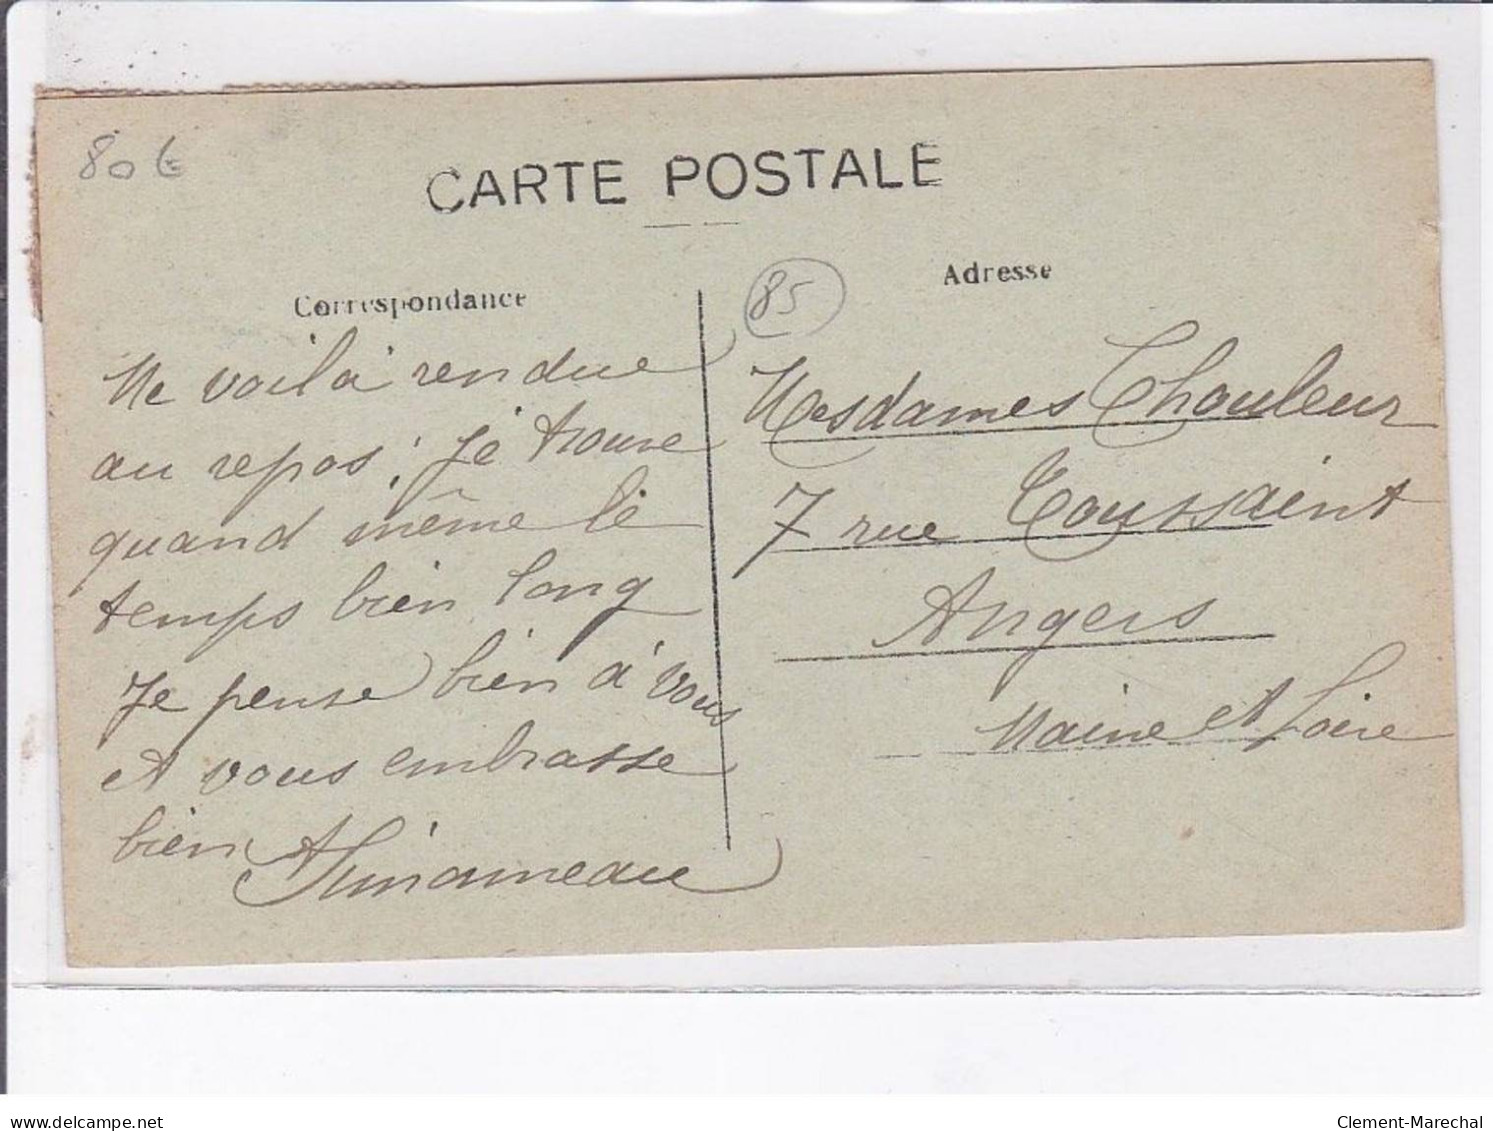 80€
CARTE POSTALE
Correspondance
Me voilà rendue
au repos; je trouve
quand même le
temps bien long
Je pense bien à vous
et vous embrasse
bien
85
Adresse
Mesdames Thouleur
7 rue Toussaint
Angers
Maine et Loire
www.delcampe.net
Clement-Marechal